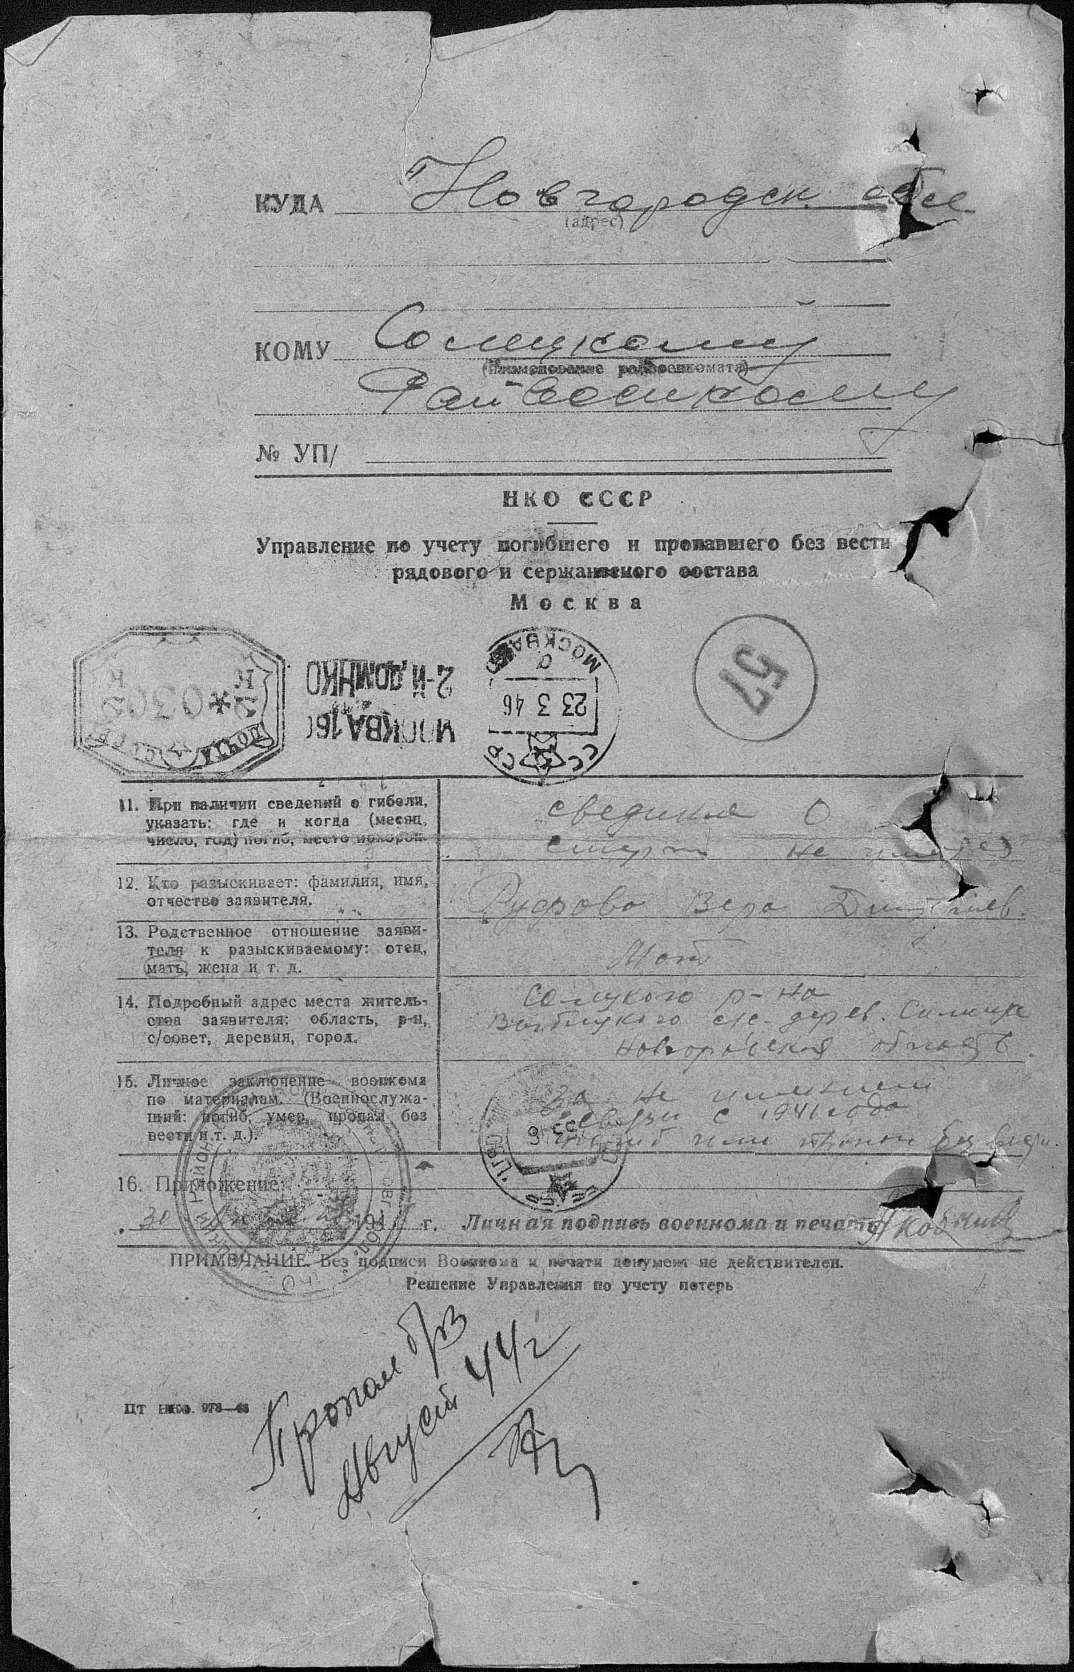 КУДА Новгородск. обл
(адрес)
КОМУ Солецкому
(Наименование райвоенкомата)
Райвоенкому
№ УП/
НКО СССР
Управление по учету погибшего и пропавшего без вести
рядового и сержантского состава
Москва
ПОЧТА СССР
030
2-й ДОМ НКО
МОСКВА 160
МОСКВА
23 3 46
СССР
57
11. При наличии сведений о гибели,
указать: где и когда (месяц,
число, год) погиб, место похорон.
свединия О
смерти не имеет
12. Кто разыскивает: фамилия, имя,
отчество заявителя.
Вера Дмитриев.
13. Родственное отношение заяви-
теля к разыскиваемому: отец,
мать, жена и т. д.
Мать
14. Подробный адрес места житель-
ства заявителя: область, р-н,
с/совет, деревня, город.
Солецкого р-на
с/с. дерев.
Новгородская область.
15. Личное заключение военкома
по материалам. (Военнослужа-
щий: погиб, умер, пропал без
вести и т. д.).
За не имением
связи с 1941 года
погиб или пропал без вести.
16. Приложение:
30 194 г. Личная подпись военкома и печать
ПРИМЕЧАНИЕ. Без подписи Военкома и печати документ не действителен.
Решение Управления по учету потерь
Пропал б/в
Август 44 г
ПТ НКО 973—46